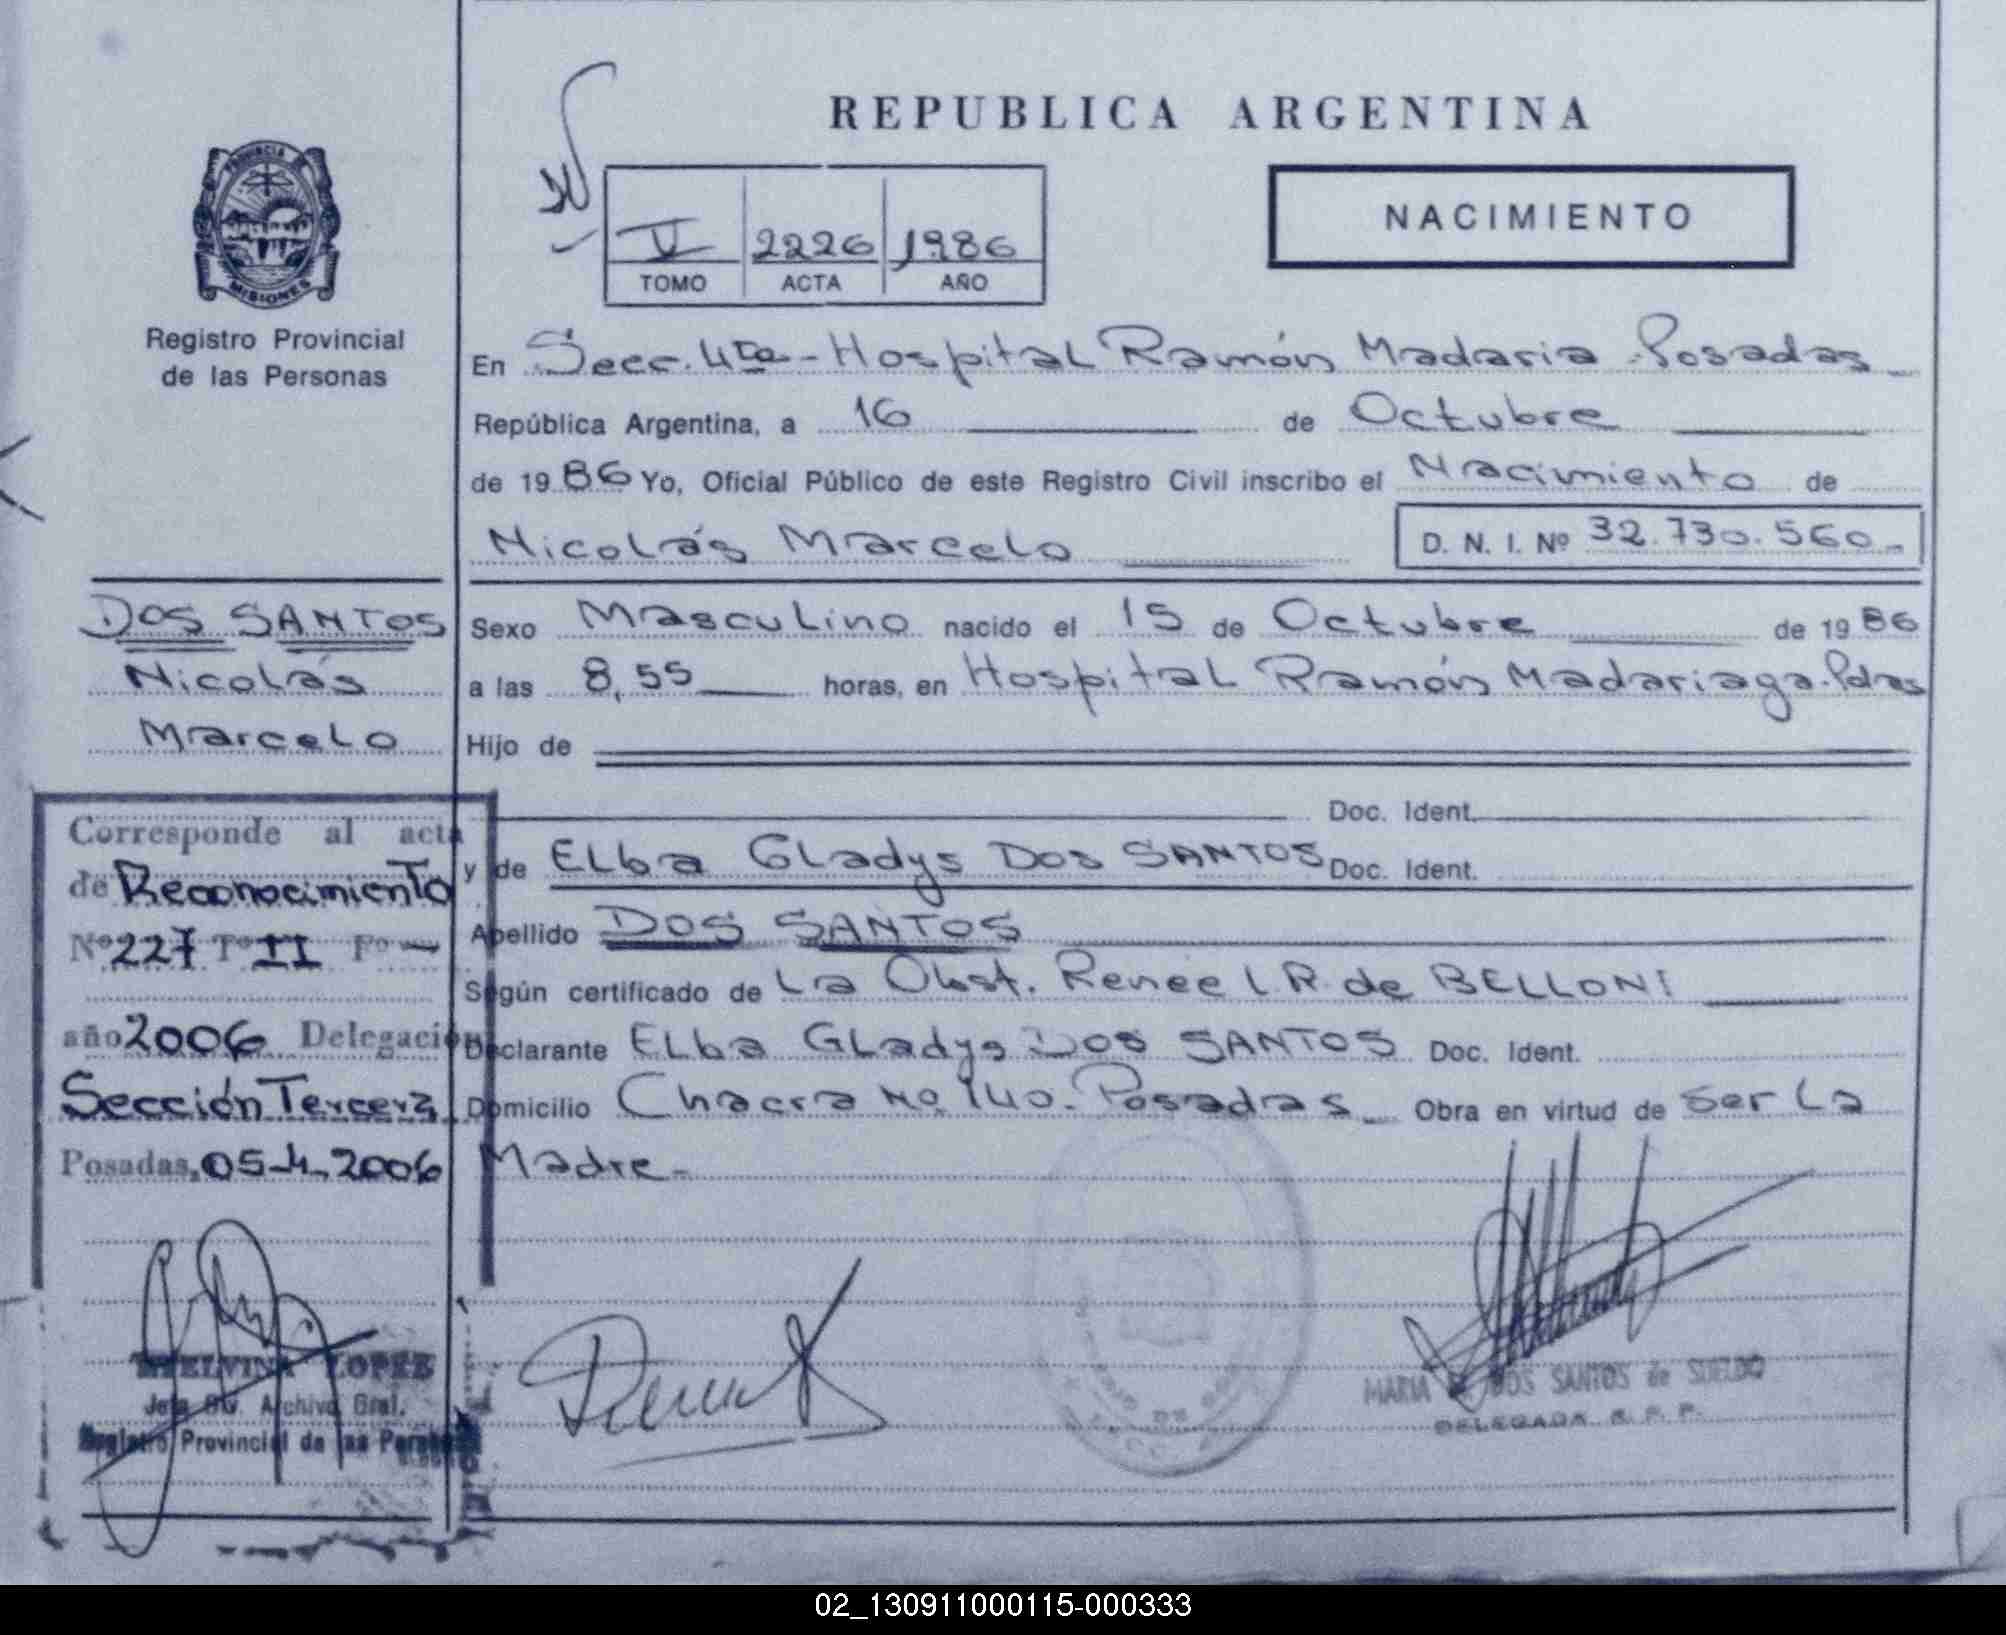 REPUBLICA ARGENTINA
NACIMIENTO
V 2226 1986
TOMO ACTA AÑO
PROVINCIA DE
MISIONES
Registro Provincial
de las Personas
En Secc. 4ta - Hospital Ramón Madaria Posadas
República Argentina, a 16 de Octubre
de 1986 Yo, Oficial Público de este Registro Civil inscribo el Nacimiento de
Nicolás Marcelo D. N. I. Nº 32.730.560-
Sexo Masculino nacido el 15 de Octubre de 1986
a las 8,55 horas, en Hospital Ramón Madariaga. Pdas
Hijo de
Doc. Ident.
y de Elba Gladys Dos SANTOS Doc. Ident.
Apellido DOS SANTOS
Según certificado de La Obst. Renee L.R. de BELLONI
Declarante Elba Gladys Dos SANTOS Doc. Ident.
Domicilio Chacra No. 140. Posadas Obra en virtud de Ser La
Madre-
DOS SANTOS
Nicolás
Marcelo
Corresponde al acta
de Reconocimiento
Nº 227 Tº II Fº -
año 2006 Delegación
Sección Tercera
Posadas, 05-4-2006
LOPEZ
Archivo Gral.
Registro Provincial de las Personas
MARIA DOS SANTOS de SUELDO
DELEGADA R. P. P.
02_130911000115-000333